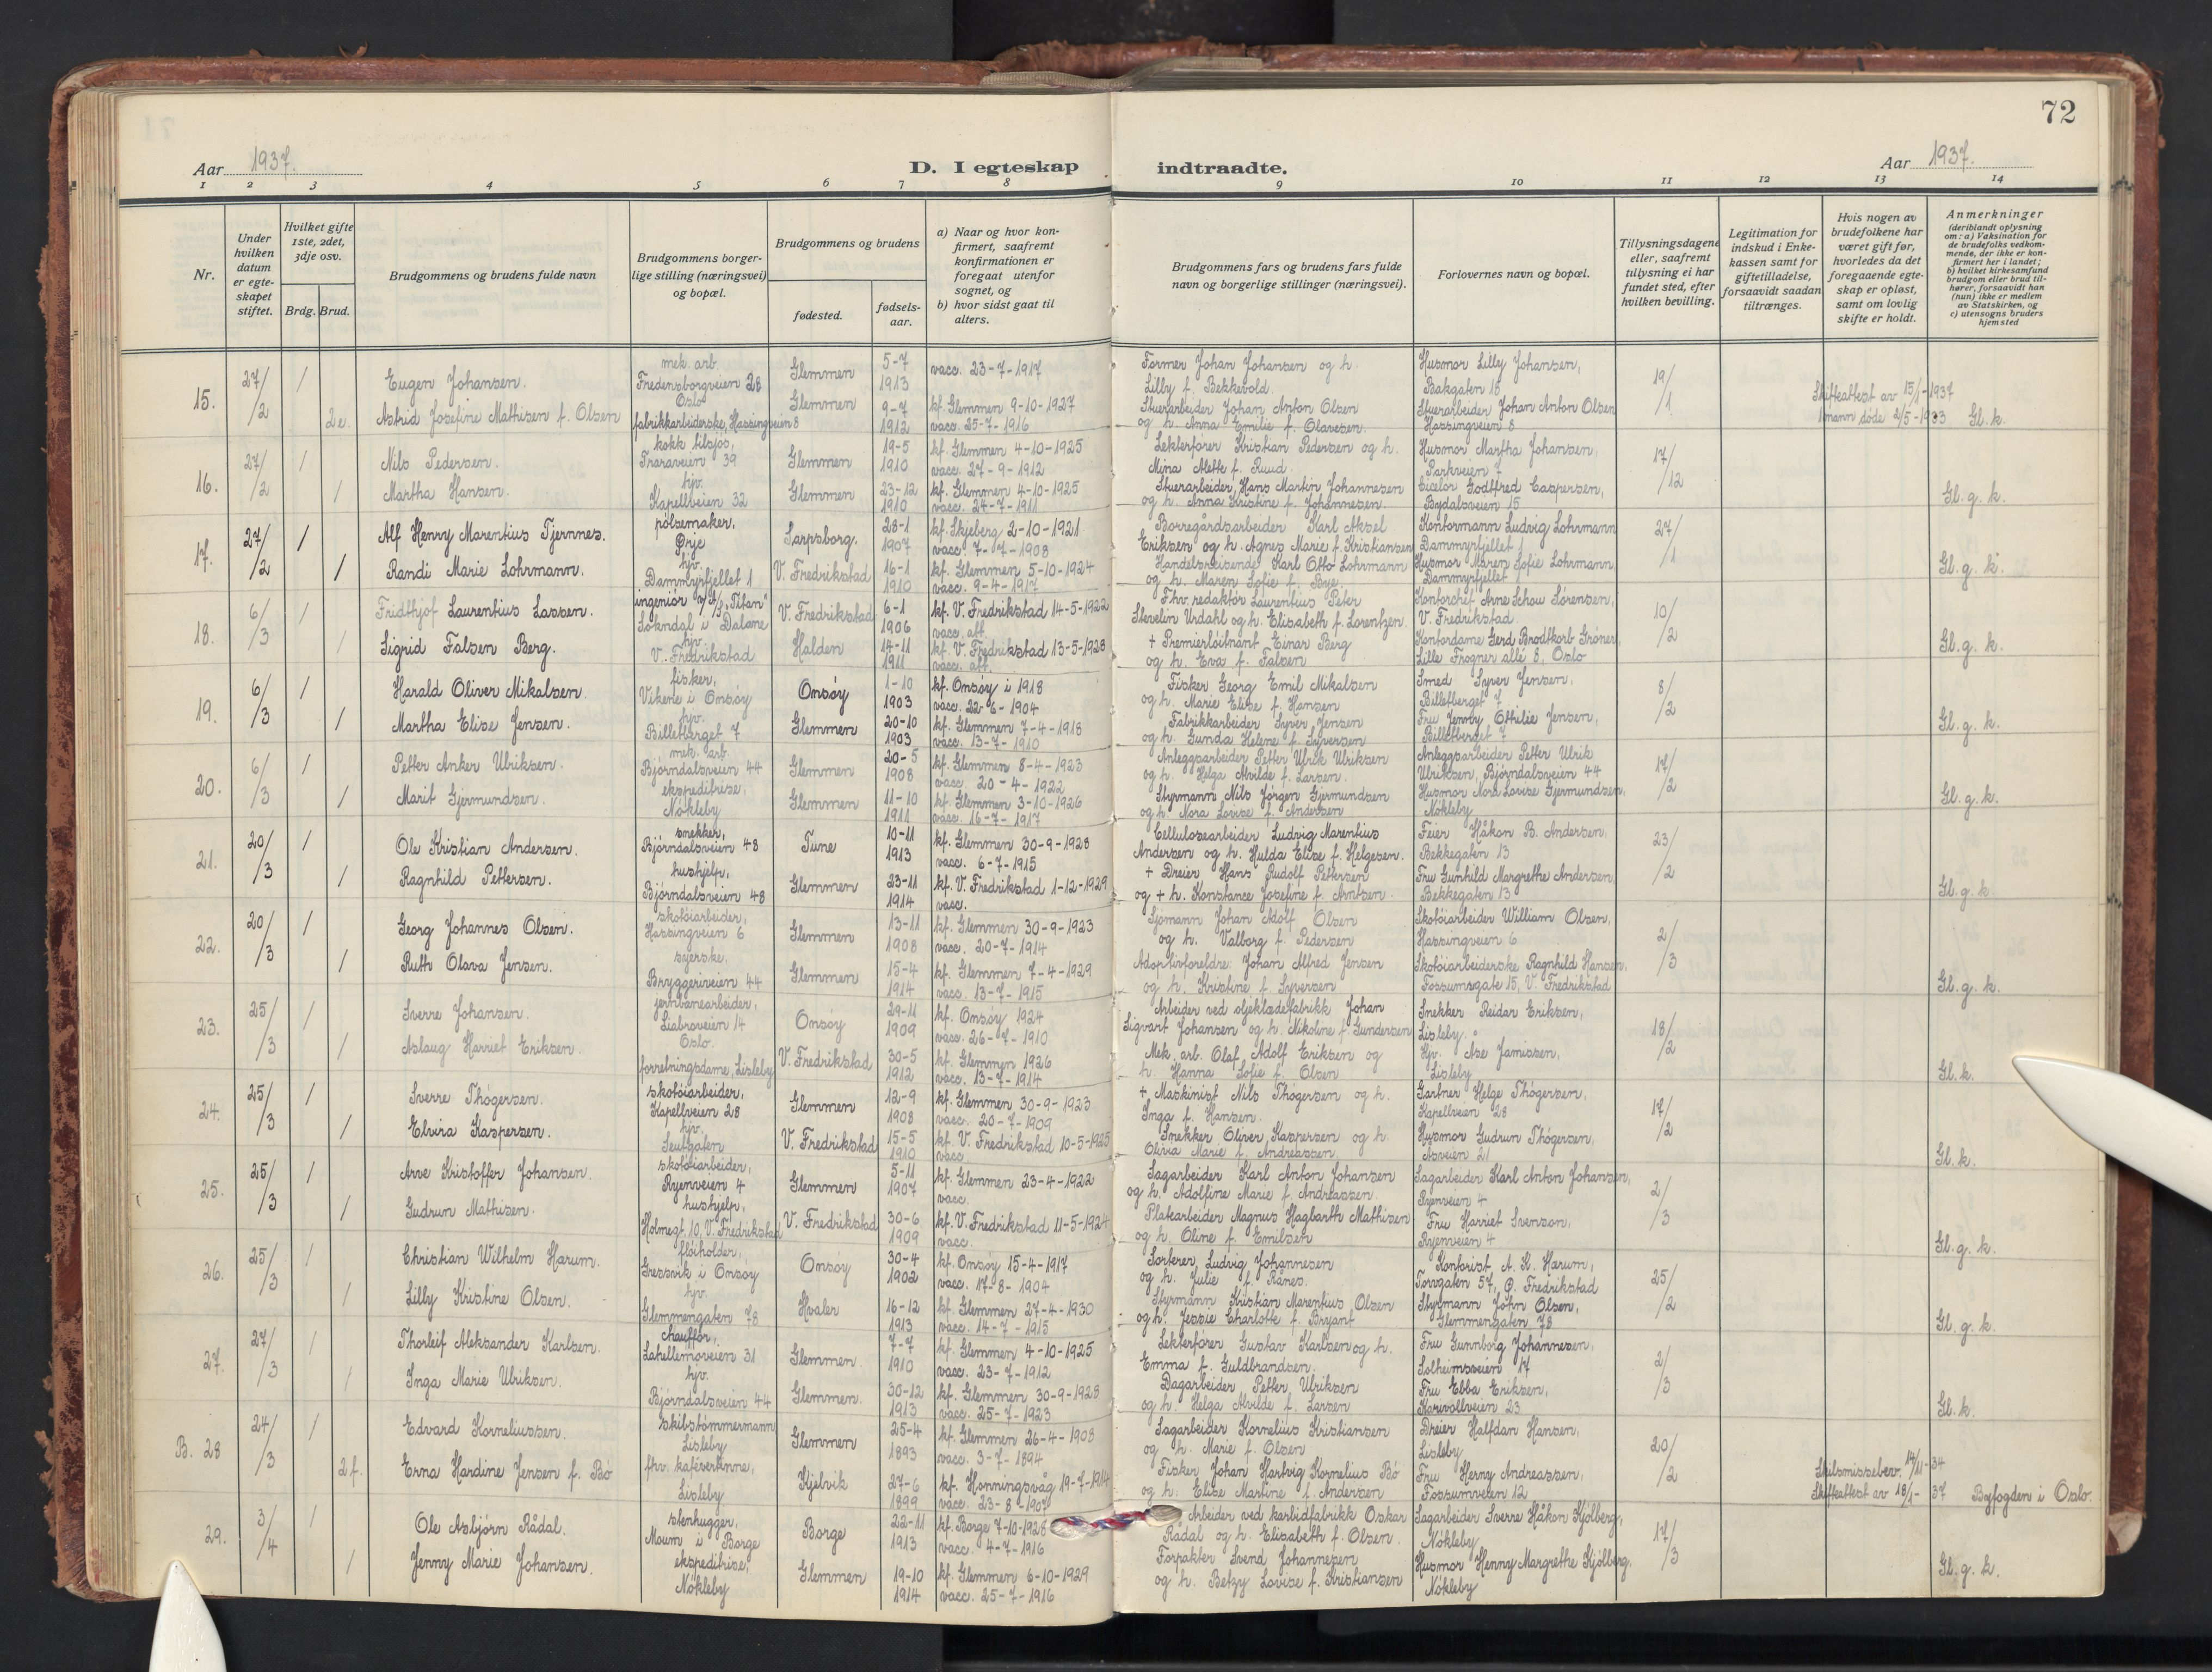 72
Aar 1937.
D. I egteskap indtraadte.
Aar 1937.
1 2 3 4 5 6 7 8 9 10 11 12 13 14
Nr.
Under hvilken datum er egteskapet stiftet.
Hvilket gifte 1ste, 2det, 3dje osv.
Brdg. Brud.
Brudgommens og brudens fulde navn
Brudgommens borgerlige stilling (næringsvei) og bopæl.
Brudgommens og brudens
fødested.
fødselsaar.
a) Naar og hvor konfirmert, saafremt konfirmationen er foregaat utenfor sognet, og
b) hvor sidst gaat til alters.
Brudgommens fars og brudens fars fulde navn og borgerlige stillinger (næringsvei).
Forlovernes navn og bopæl.
Tillysningsdagene eller, saafremt tillysning ei har fundet sted, efter hvilken bevilling.
Legitimation for indskud i Enkekassen samt for giftetilladelse, forsaavidt saadan tiltrænges.
Hvis nogen av brudefolkene har været gift før, hvorledes da det foregaaende egteskap er opløst, samt om lovlig skifte er holdt.
Anmerkninger (deriblandt oplysning om: a) Vaksination for de brudefolks vedkommende, der ikke er konfirmert her i landet; b) hvilket kirkesamfund brudgom eller brud tilhører, forsaavidt han (hun) ikke er medlem av Statskirken, og c) utensogns bruders hjemsted
15. 27/2 1 Eugen Johansen. mek. arb. Fredensborgveien 28 Oslo Glemmen 5-7 1913 vacc. 23-7-1917 Former Johan Johansen og h. Lilly f. Bekkevold. Husmor Lilly Johansen, Bakgaten 16 19/1 Skifteattest av 15/1-1937
2e. Astrid Josefine Mathisen f. Olsen fabrikkarbeiderske, Hassingveien 8 Glemmen 9-7 1912 kf. Glemmen 9-10-1927 vacc. 25-7-1916 Stuerarbeider Johan Anton Olsen og h. Anna Emilie f. Olavesen. Stuerarbeider Johan Anton Olsen Hassingveien 8 1 mann døde 2/5-1933 Gl. k.
16. 27/2 1 Nils Pedersen. kokk tilsjøs, Traraveien 39 Glemmen 19-5 1910 kf. Glemmen 4-10-1925 vacc. 27-9-1912 Lekterfører Kristian Pedersen og h. Mina Alette f. Ruud. Husmor Martha Johansen, Parkveien 7 17/12
1 Martha Hansen. hjv. Kapellveien 32 Glemmen 23-12 1910 kf. Glemmen 4-10-1925 vacc. 24-7-1911 Stuerarbeider Hans Martin Johannesen og h. Anna Kristine f. Johannesen. Cicelør Godtfred Caspersen, Bydalsveien 15 Gl. g. k.
17. 27/2 1 Alf Henry Marentius Tjernnes. pølsemaker, Ørje Sarpsborg. 28-1 1907 kf. Skjeberg 2-10-1921 vacc. 7-7-1908 Borregårdsarbeider Karl Aksel Eriksen og h. Agnes Marie f. Kristiansen Kontormann Ludvig Lohrmann Dammyrfjellet 1 27/1
1 Randi Marie Lohrmann. hjv. Dammyrfjellet 1 V. Fredrikstad 16-1 1910 kf. Glemmen 5-10-1924 vacc. 9-4-1917 Handelsreisende Karl Otto Lohrmann og h. Maren Sofie f. Bye. Husmor Maren Sofie Lohrmann Dammyrfjellet 1 Gl. g. k.
18. 6/3 1 Fridthjof Laurentius Lassen. ingeniør v/ A/S "Titan" Sokndal i Dalane V. Fredrikstad 6-1 1906 kf. V. Fredrikstad 14-5-1922 vacc. att. Fhv. redaktør Laurentius Peter Stevelin Urdahl og h. Elisabeth f. Lorentzen. Kontorchef Arne Schou Sørensen, V. Fredrikstad 10/2
1 Sigrid Falsen Berg. hjv. V. Fredrikstad Halden 14-11 1911 kf. V. Fredrikstad 13-5-1928 vacc. att. + Premierløitnant Einar Berg og h. Eva f. Falsen Kontordame Gerd Brodtkorb Gröner, Lille Frogner allé 8, Oslo Gl. g. k.
19. 6/3 1 Harald Oliver Mikalsen. fisker, Vikene i Onsøy Onsøy 1-10 1903 kf. Onsøy i 1918 vacc. 22-6-1904 Fisker Georg Emil Mikalsen og h. Marie Elise f. Hansen Smed Syver Jensen, Billetberget 7 8/2
1 Martha Elise Jensen. hjv. Billetberget 7 Glemmen 20-10 1903 kf. Glemmen 7-4-1918 vacc. 13-7-1910 Fabrikkarbeider Syver Jensen og h. Gunda Helene f. Syversen Fru Jenny Othilie Jensen, Billetberget 7 Gl. g. k.
20. 6/3 1 Petter Anker Ulriksen. mek. arb. Bjørndalsveien 44 Glemmen 20-5 1908 kf. Glemmen 8-4-1923 vacc. 20-4-1922 Anleggsarbeider Petter Ulrik Ulriksen og h. Helga Alvilde f. Larsen. Anleggsarbeider Petter Ulrik Ulriksen, Bjørndalsveien 44 17/2
1 Marit Gjermundsen. ekspeditrise, Nøkleby Glemmen 11-10 1911 kf. Glemmen 3-10-1926 vacc. 16-7-1917 Styrmann Nils Jørgen Gjermundsen og h. Nora Lovise f. Andersen Husmor Nora Lovise Gjermundsen, Nøkleby Gl. g. k.
21. 20/3 1 Ole Kristian Andersen. snekker, Bjørndalsveien 48 Tune 10-11 1913 kf. Glemmen 30-9-1928 vacc. 6-7-1915 Cellulosearbeider Ludvig Marentius Andersen og h. Hulda Elise f. Helgesen. Feier Håkon B. Andersen, Bekkegaten 13 23/2
1 Ragnhild Pettersen. hushjelp, Bjørndalsveien 48 Glemmen 23-11 1914 kf. V. Fredrikstad 1-12-1929 vacc. + Dreier Hans Rudolf Pettersen og + h. Konstance Josefine f. Arntsen Fru Gunhild Margrethe Andersen, Bekkegaten 13 Gl. g. k.
22. 20/3 1 Georg Johannes Olsen. skotøiarbeider, Hassingveien 6 Glemmen 13-11 1908 kf. Glemmen 30-9-1923 vacc. 20-7-1914 Sjømann Johan Adolf Olsen og h. Valborg f. Pedersen Skotøiarbeider William Olsen, Hassingveien 6 2/3
1 Ruth Olava Jensen. syerske, Bryggeriveien 44 Glemmen 15-4 1914 kf. Glemmen 7-4-1929 vacc. 13-7-1915 Adoptivforeldre: Johan Alfred Jensen og h. Kristine f. Syversen Skotøiarbeiderske Ragnhild Hansen, Fossumsgate 15, V. Fredrikstad Gl. g. k.
23. 25/3 1 Sverre Johansen. jernbanearbeider, Liabroveien 14 Oslo. Onsøy 29-11 1909 kf. Onsøy 1924 vacc. 26-7-1910 Arbeider ved oljeklædefabrikk Johan Sigvart Johansen og h. Nikoline f. Gundersen Snekker Reidar Eriksen, Lisleby. 18/2
1 Aslaug Harriet Eriksen. forretningsdame, Lisleby V. Fredrikstad 30-5 1912 kf. Glemmen 1926 vacc. 13-7-1914 Mek. arb. Olaf Adolf Eriksen og h. Hanna Sofie f. Olsen Hjv. Åse Jamissen, Lisleby Gl. k.
24. 25/3 1 Sverre Thøgersen. skotøiarbeider, Kapellveien 28 Glemmen 12-9 1908 kf. Glemmen 30-9-1923 vacc. 20-7-1909 + Maskinist Nils Thøgersen og h. Inga f. Hansen. Gartner Helge Thøgersen, Kapellveien 28 17/2
1 Elvira Kaspersen. hjv. Leutgaten V. Fredrikstad 15-5 1910 kf. V. Fredrikstad 10-5-1925 vacc. Snekker Oliver Kaspersen og h. Olivia Marie f. Andreassen. Husmor Gudrun Thøgersen, Åsveien 21 Gl. k.
25. 25/3 1 Arve Kristoffer Johansen. skotøiarbeider, Ryenveien 4 Glemmen 5-11 1907 kf. Glemmen 23-4-1922 vacc. Sagarbeider Karl Anton Johansen og h. Adolfine Marie f. Andreassen. Sagarbeider Karl Anton Johansen, Ryenveien 4 2/3
1 Gudrun Mathisen. hushjelp, Holmegt. 10, V. Fredrikstad V. Fredrikstad 30-6 1909 kf. V. Fredrikstad 11-5-1924 vacc. Platearbeider Magnus Hagbarth Mathisen og h. Oline f. Emilsen Fru Harriet Svenson, Ryenveien 4 Gl. g. k.
26. 25/3 1 Christian Wilhelm Harum. fløiholder, Gressvik i Onsøy Onsøy 30-4 1902 kf. Onsøy 15-4-1917 vacc. 17-8-1904 Sorterer Ludvig Johannesen og h. Julie f. Rånes. Kontorist A. K. Harum, Torvgaten 57, Ø. Fredrikstad 25/2
1 Lilly Kristine Olsen. hjv. Glemmengaten 78 Hvaler 16-12 1913 kf. Glemmen 27-4-1930 vacc. 14-7-1915 Styrmann Kristian Marentius Olsen og h. Jessie Charlotte f. Bryant Styrmann John Olsen, Glemmengaten 78 Gl. g. k.
27. 27/3 1 Thorleif Aleksander Karlsen. chauffør, Lahellemoveien 31 Glemmen. 7-7 1910 kf. Glemmen 4-10-1925 vacc. 23-7-1912 Lekterfører Gustav Karlsen og h. Emma f. Guldbrandsen. Fru Gunnborg Johannesen, Solheimsveien 17 2/3
1 Inga Marie Ulriksen. hjv. Bjørndalsveien 44 Glemmen. 30-12 1913 kf. Glemmen 30-9-1928 vacc. 25-7-1923 Dagarbeider Petter Ulriksen og h. Helga Alvilde f. Larsen Fru Ebba Eriksen, Karivollveien 23 Gl. k.
B. 28 24/3 1 Edvard Korneliussen. skibstømmermann Lisleby Glemmen 25-4 1893 kf. Glemmen 26-4-1908 vacc. 3-7-1894 Sagarbeider Kornelius Kristiansen og h. Marie f. Olsen Dreier Halfdan Hansen, Lisleby 20/2
2 f. Erna Hardine Jensen f. Bø fhv. kafévertinne, Lisleby Kjelvik 27-6 1899 kf. Honningsvåg 19-7-1914 vacc. 23-8-1907 Fisker Johan Hartvig Kornelius Bø og h. Elise Martine f. Andersen Fru Henny Andreassen, Fossumveien 12 Skilsmissebev. 14/11-34 Skifteattest av 18/1-37 Byfogden i Oslo.
29. 3/4 1 Ole Asbjørn Rådal. stenhugger, Moum i Borge Borge 22-11 1913 kf. Borge 7-10-1928 vacc. 4-7-1916 Arbeider ved karbidfabrikk Oskar Rådal og h. Elisabeth f. Olsen. Sagarbeider Sverre Håkon Kjølberg, Nøkleby 17/3
1 Jenny Marie Johansen. ekspeditrise, Nøkleby Glemmen 19-10 1914 kf. Glemmen 6-10-1929 vacc. 25-7-1916 Forpakter Svend Johannesen og h. Betzy Lovise f. Kristiansen Husmor Henny Margrethe Kjølberg. Nøkleby Gl. g. k.